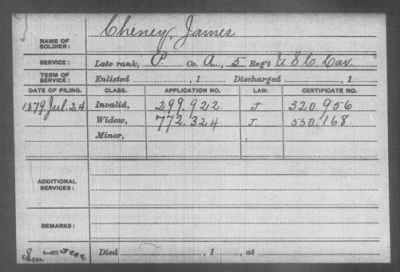 Cheney, James
NAME OF SOLDIER:
SERVICE: Late rank, P Co. A, 5 Reg't U S C Cav
TERM OF SERVICE: Enlisted , 1 Discharged , 1
DATE OF FILING. CLASS. APPLICATION NO. LAW. CERTIFICATE NO.
1879 Jul. 24 Invalid, 299.922 J 320.956
Widow, 772.324 J 550.168
Minor,
ADDITIONAL SERVICES:
REMARKS:
Died , 1 , at